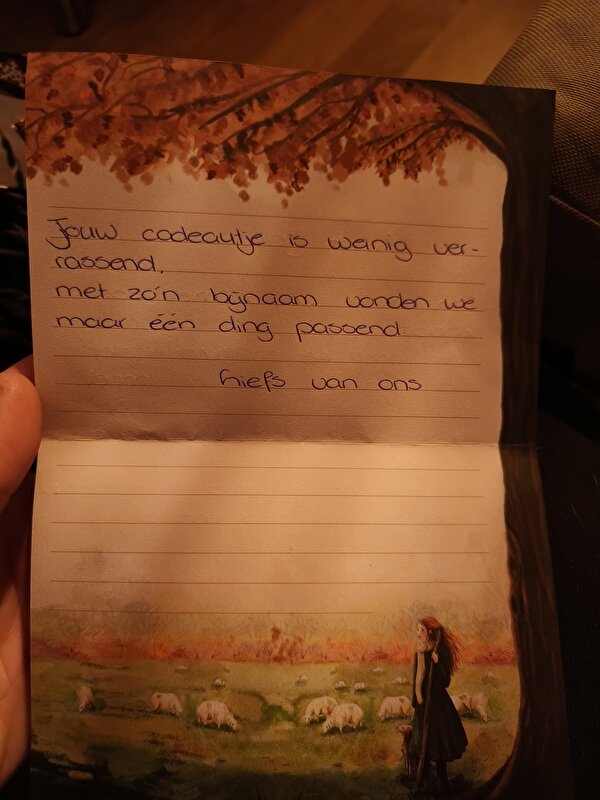 Jouw cadeautje is weinig ver-
rassend,
met zo'n bijnaam vonden we
maar één ding passend
liefs van ons